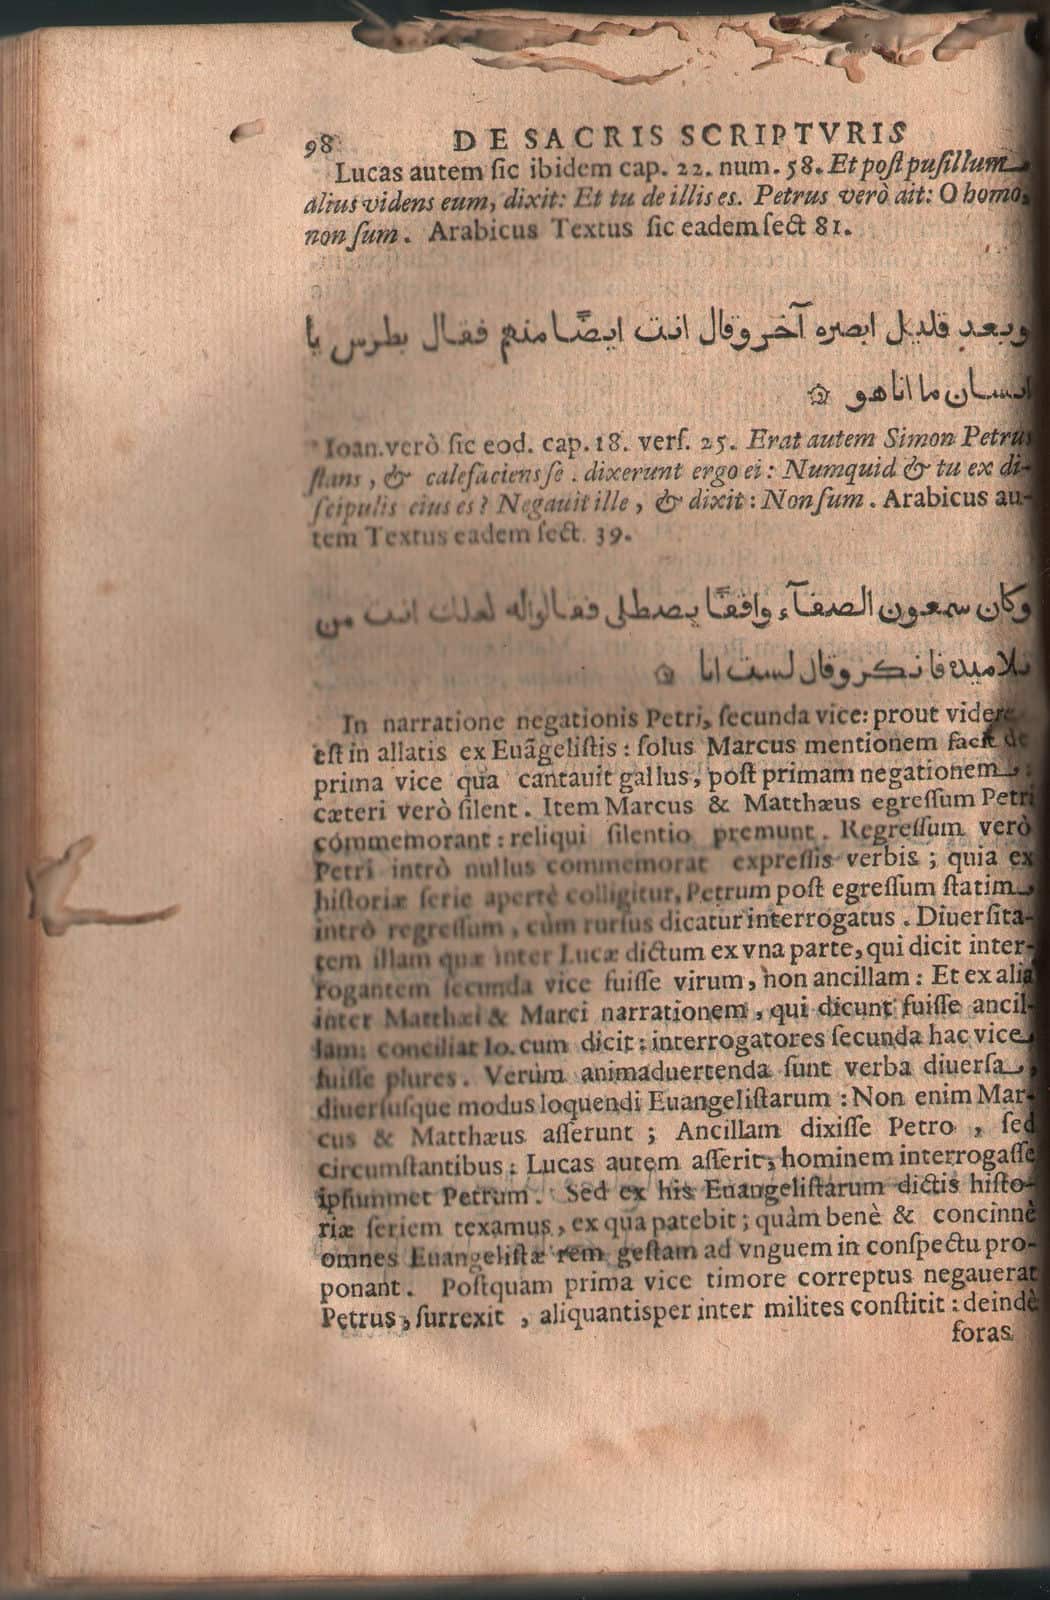 98 DE SACRIS SCRIPTVRIS
Lucas autem ſic ibidem cap. 22. num. 58. Et poſt puſillum
alius videns eum, dixit: Et tu de illis es. Petrus verò ait: O homo,
non ſum. Arabicus Textus ſic eadem ſect 81.
وبعد قليل ابصره آخر وقال انت ايضًا منهم فقال بطرس يا
انسان ما انا هو
Ioan. verò ſic eod. cap. 18. verſ. 25. Erat autem Simon Petrus
ſtans, & calefaciens ſe. dixerunt ergo ei: Numquid & tu ex di-
ſcipulis eius es? Negauit ille, & dixit: Non ſum. Arabicus au-
tem Textus eadem ſect. 39.
وكان سمعون الصفآء واقفًا يصطلى فقالوا له لعلك انت من
تلاميذه فانكر وقال لست انا
In narratione negationis Petri, ſecunda vice: prout videre
eſt in allatis ex Euãgeliſtis: ſolus Marcus mentionem facit de
prima vice qua cantauit gallus, poſt primam negationem:
cæteri verò ſilent. Item Marcus & Matthæus egreſſum Petri
commemorant: reliqui ſilentio premunt. Regreſſum verò
Petri intrò nullus commemorat expreſſis verbis; quia ex
hiſtoriæ ſerie apertè colligitur, Petrum poſt egreſſum ſtatim
intrò regreſſum, cùm rurſus dicatur interrogatus. Diuerſita-
tem illam quæ inter Lucæ dictum ex vna parte, qui dicit inter-
rogantem ſecunda vice fuiſſe virum, non ancillam: Et ex alia
inter Matthæi & Marci narrationem, qui dicunt fuiſſe ancil-
lam: conciliat Io. cum dicit: interrogatores ſecunda hac vice
fuiſſe plures. Verùm animaduertenda ſunt verba diuerſa,
diuerſuſque modus loquendi Euangeliſtarum: Non enim Mar-
cus & Matthæus aſſerunt; Ancillam dixiſſe Petro, ſed
circumſtantibus: Lucas autem aſſerit, hominem interrogaſſe
ipſummet Petrum. Sed ex his Euangeliſtarum dictis hiſto-
riæ ſeriem texamus, ex qua patebit; quàm benè & concinnè
omnes Euangeliſtæ rem geſtam ad vnguem in conſpectu pro-
ponant. Poſtquam prima vice timore correptus negauerat
Petrus, ſurrexit, aliquantisper inter milites conſtitit: deindè
foras